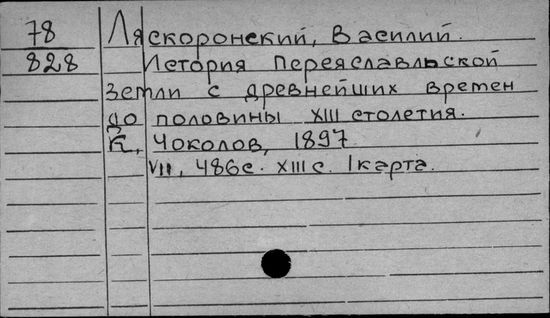 78 Ляскоронский, Василий.
828 История Переяславльской
Земли с древнейших времен
до половины XIII столетия.
К, Чоколов, 1897
VII, 486с. XIII с. 1 карта.